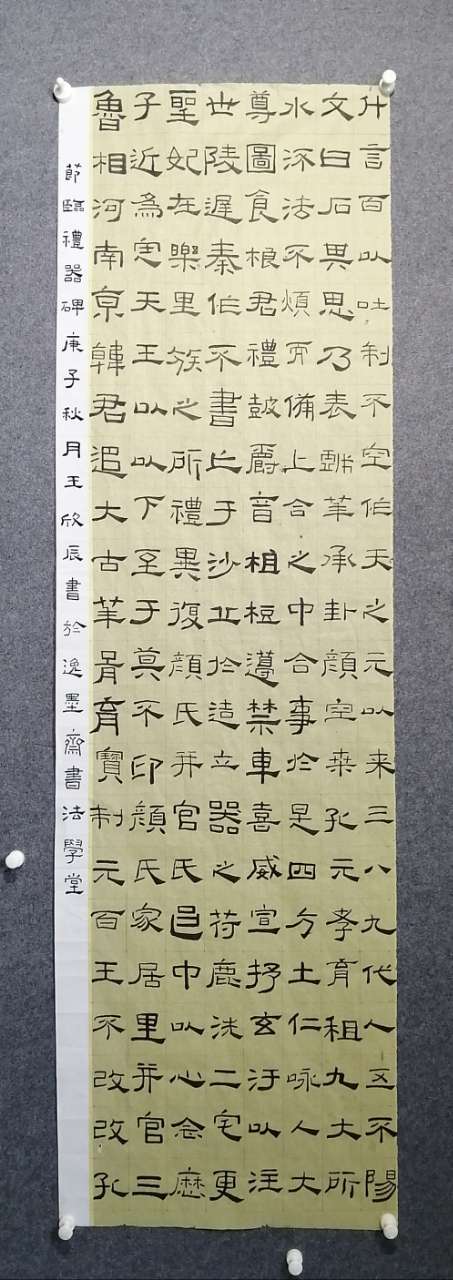 什言百以吐制不空作天之元以来三八九代人五不陽
文曰石異思乃表鍾華承卦顏空桒孔元孝育祖九大所
水流法不煩而備上合之中合事於是四方土仁咏人大
尊圖食根君禮鼓爵音柤梪籩禁車喜威宣抒玄汙以注
世陵遲秦作不書亡于沙丘於造立器之符鹿洗二宅更
聖妃在樂里族之所禮異復顏氏并官氏邑中以心念歷
子近為定天王以以下至于莫不印顏氏家居里并官三
魯相河南京韓君追大古華胥育寶制元百王不改改孔
節臨禮器碑庚子秋月王欣辰書於逸墨齋書法學堂